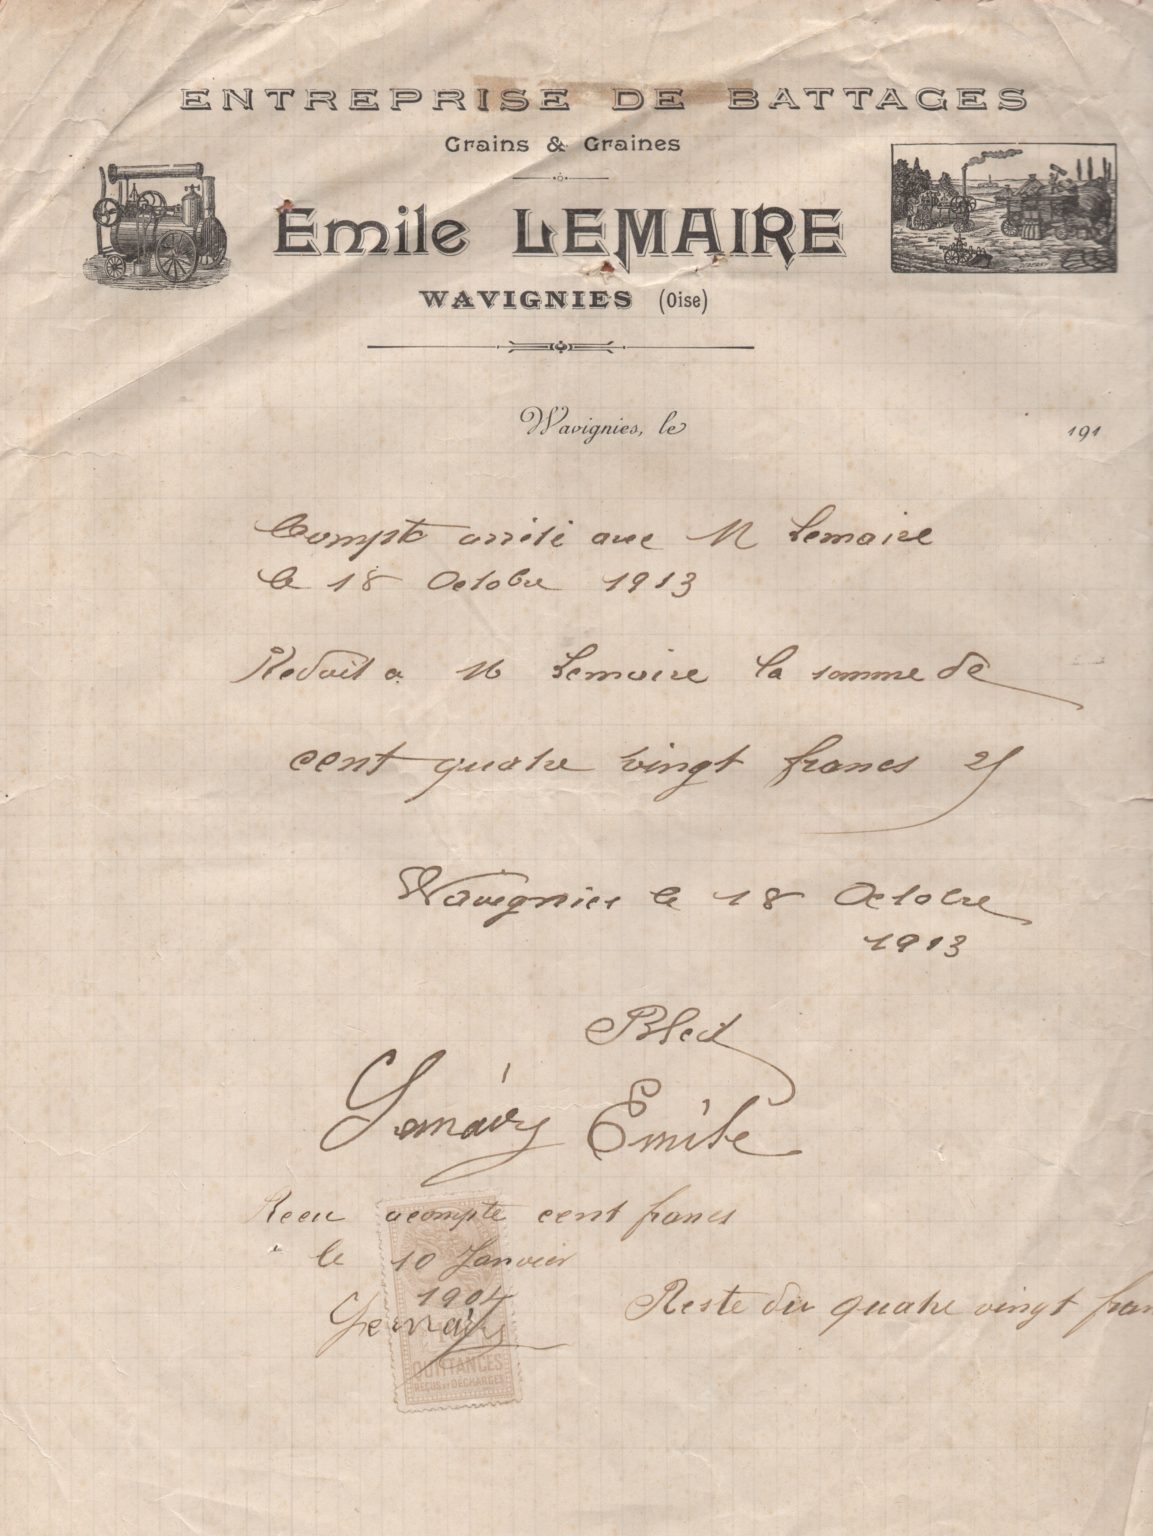 ENTREPRISE DE BATTAGES
Grains & Graines
Emile LEMAIRE
WAVIGNIES (Oise)
Wavignies, le 191
Compte arrêté avec M Lemaire
le 18 Octobre 1913
Redoit a M Lemaire la somme de
cent quatre vingt francs
Wavignies le 18 Octobre
1913
Bled
Lemaire Emile
Recu acompte cent francs
le 10 Janvier
1904
Lemaire
Reste du quatre vingt fran
QUITTANCES
REÇUS ET DÉCHARGES